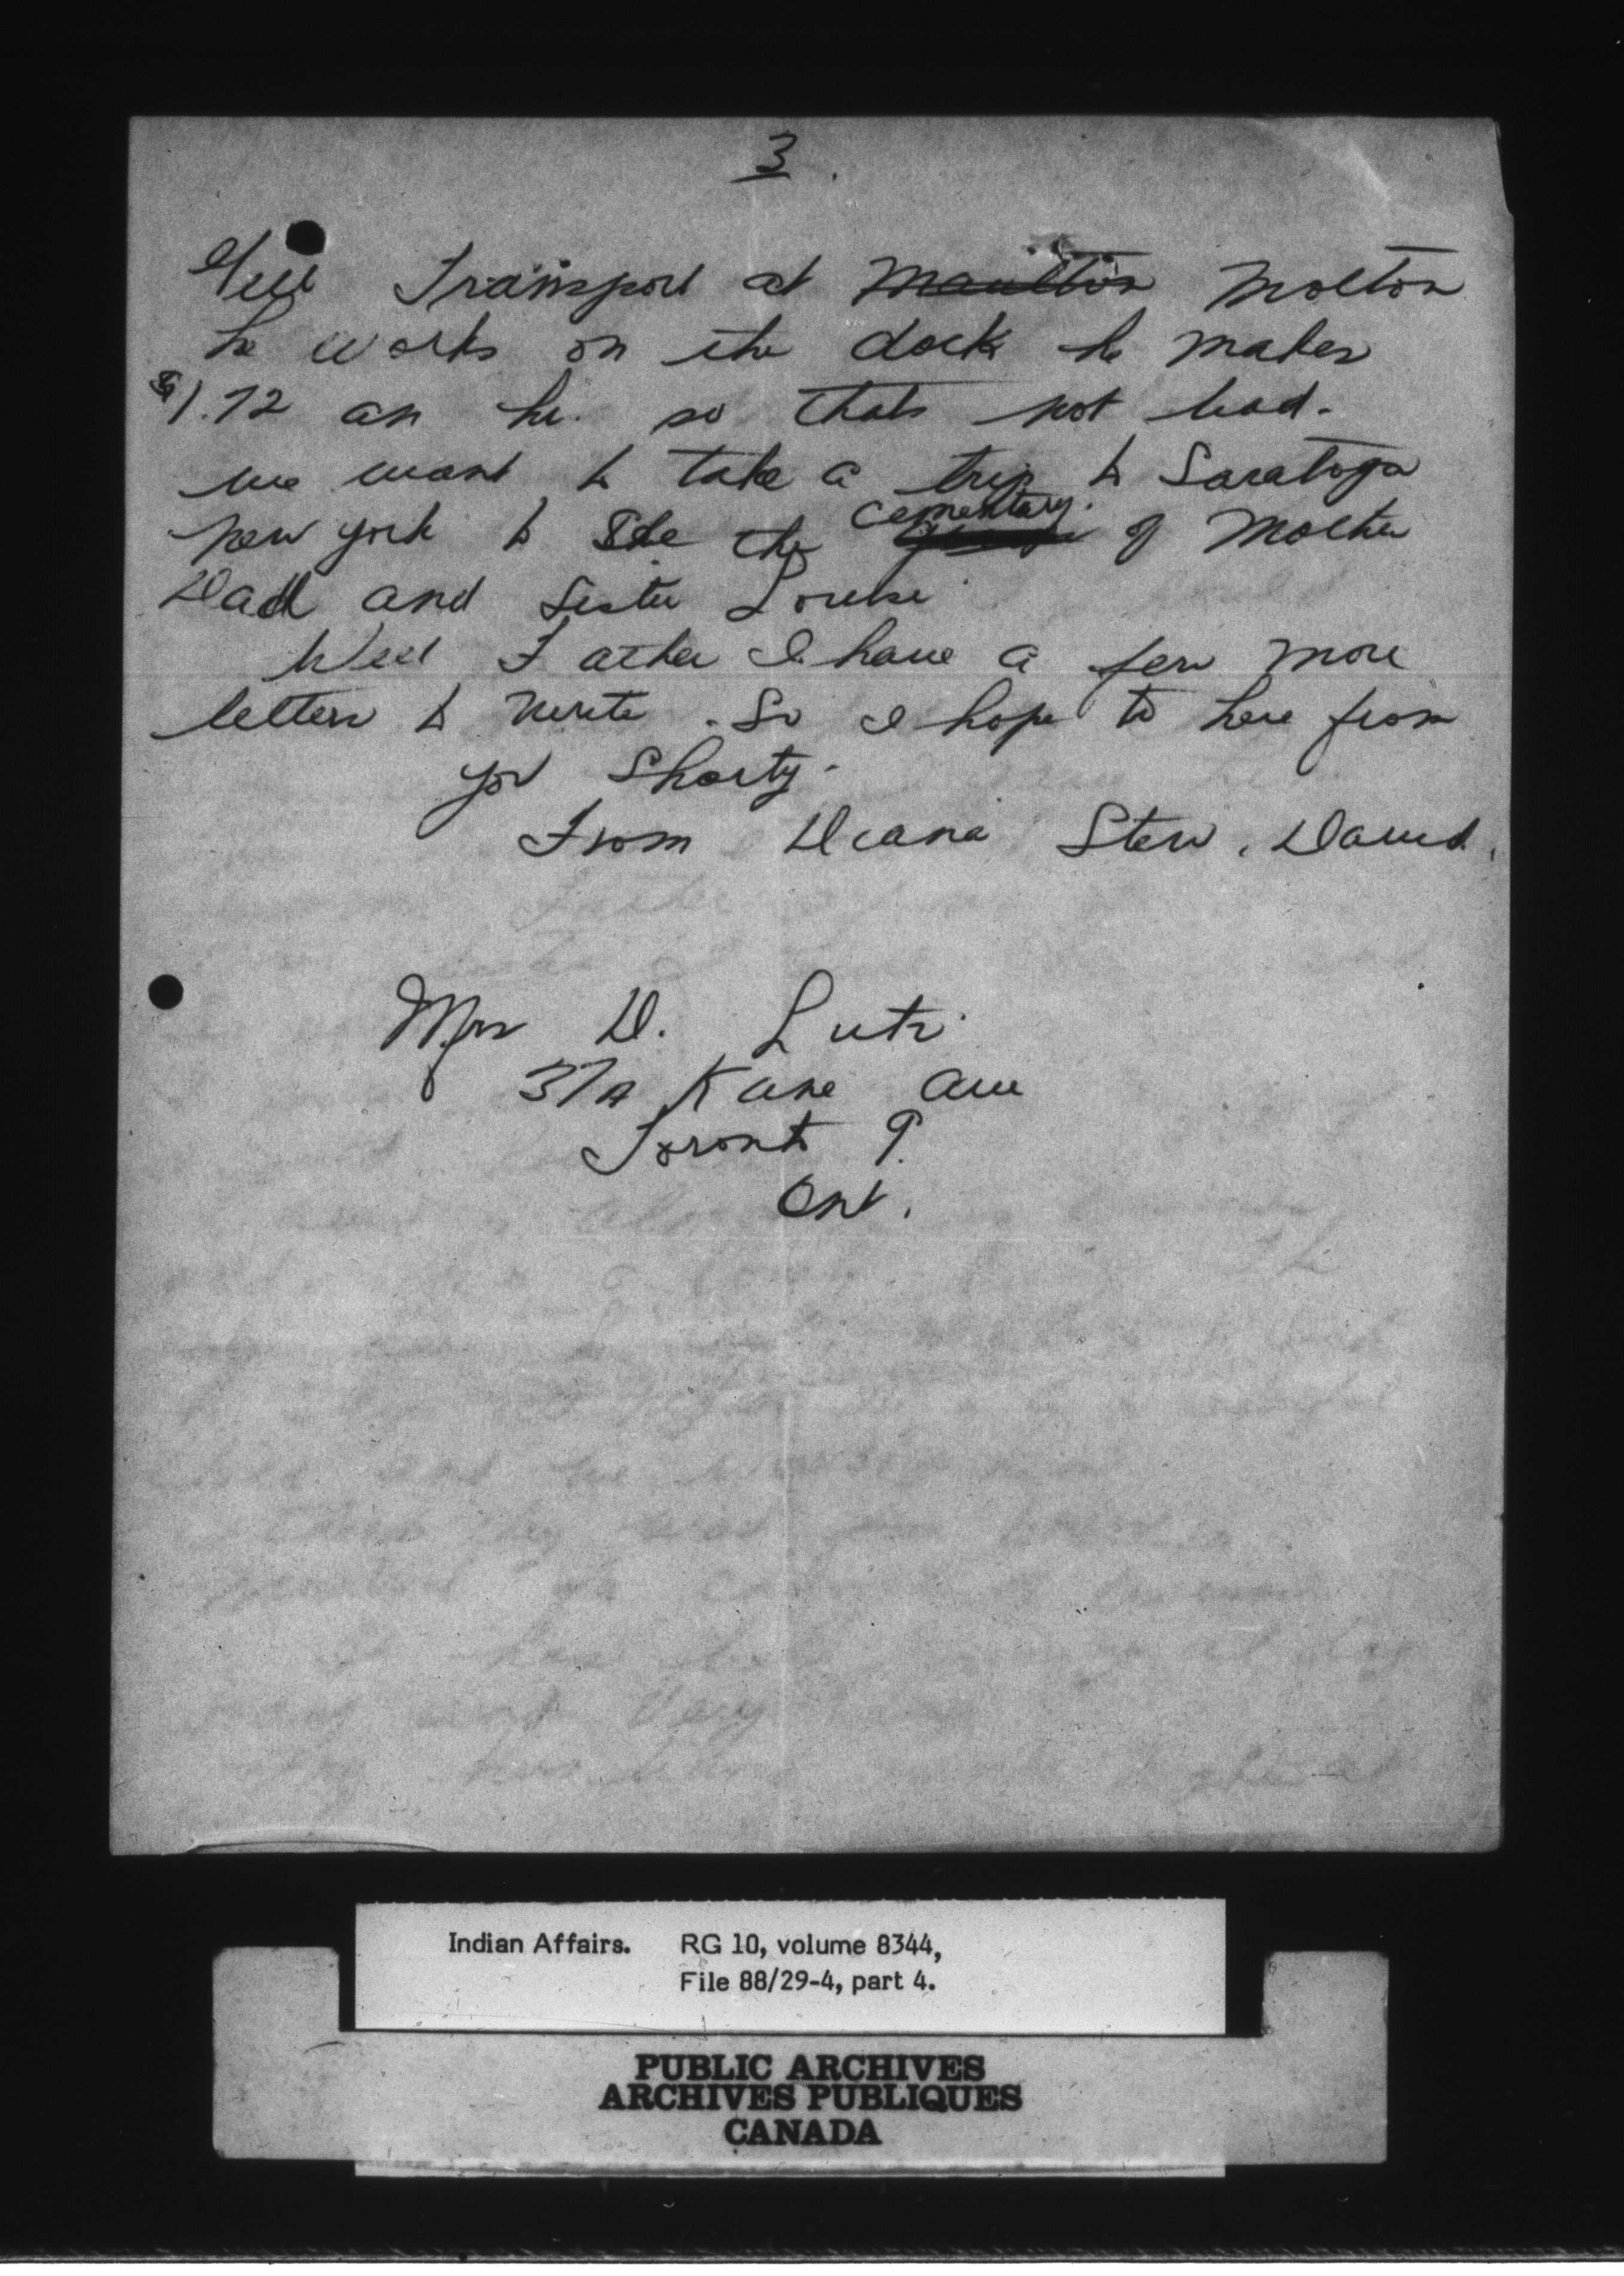 3.
Transport at Maulton Molton
he works on the dock he makes
$1.72 an hr. so thats not bad.
we want to take a trip to Saratoga
New york to See the Cementary. of Mother
Dad and Sister Louise
Well Father I have a few more
letters to write. So I hope to here from
you Shorty.
From Diane Stew. David.
Mrs D. Lutz
37A Kane Ave
Toronto 9.
Ont.
Indian Affairs. RG 10, volume 8344,
File 88/29-4, part 4.
PUBLIC ARCHIVES
ARCHIVES PUBLIQUES
CANADA